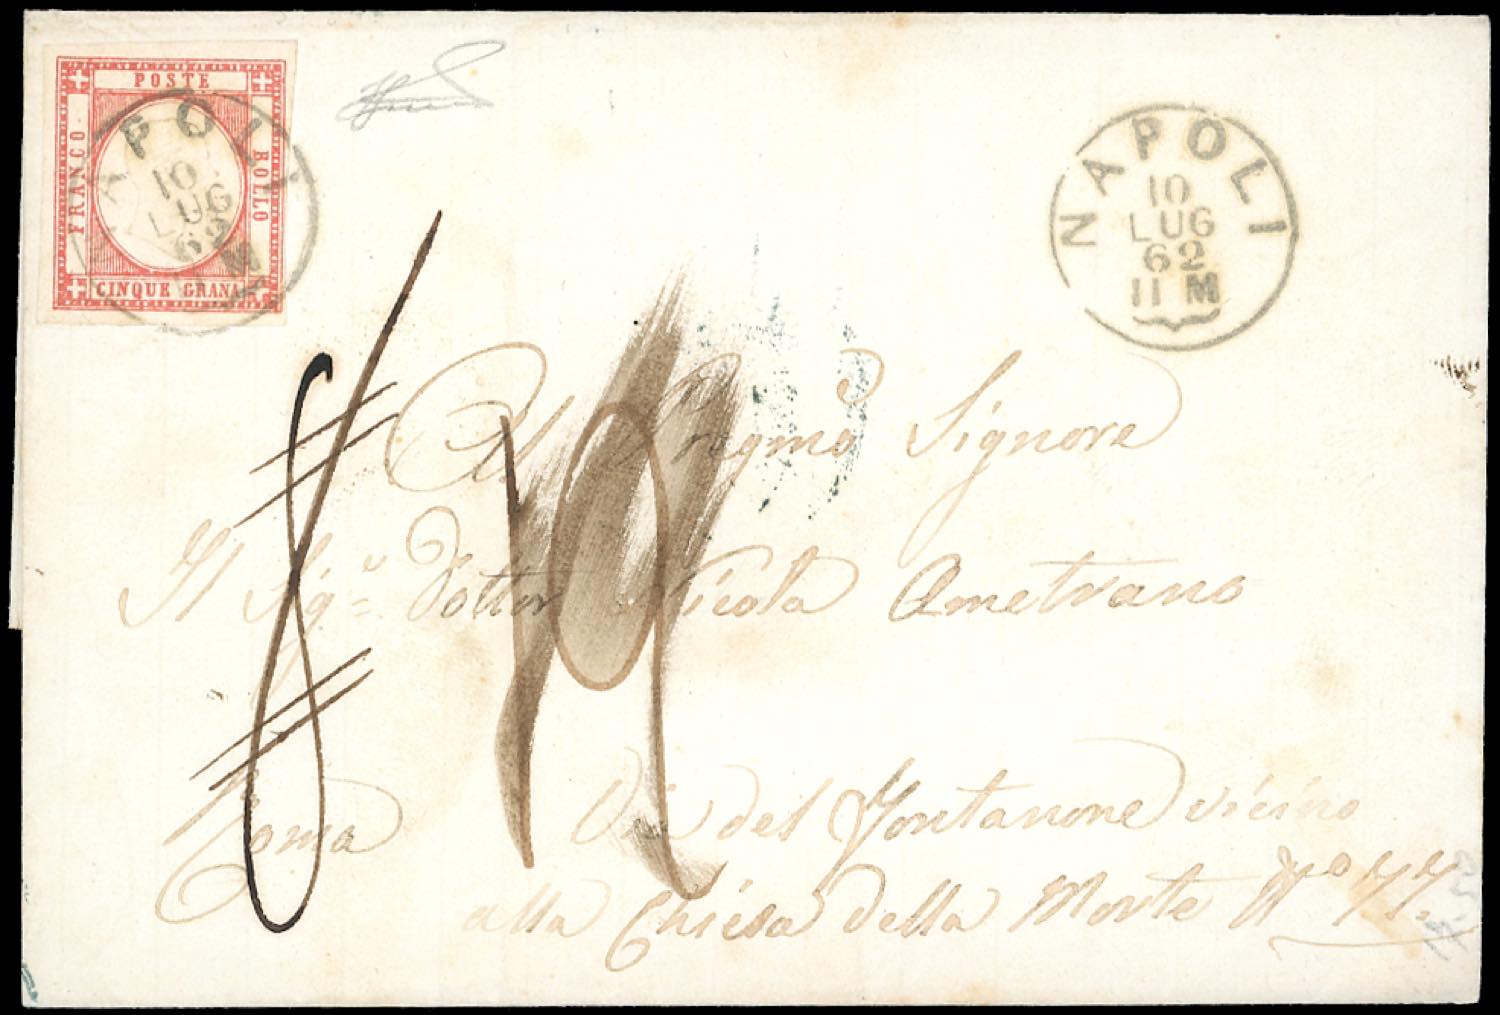 POSTE
FRANCO
BOLLO
CINQUE GRANA
NAPOLI
10
LUG
62
11 M
NAPOLI
10
LUG
62
11 M
8
19
Al Pregmo Signore
Il Sigr Dottor Nicola Ametrano
Roma
Via del Fontanone vicino
alla Chiesa della Morte No 77.